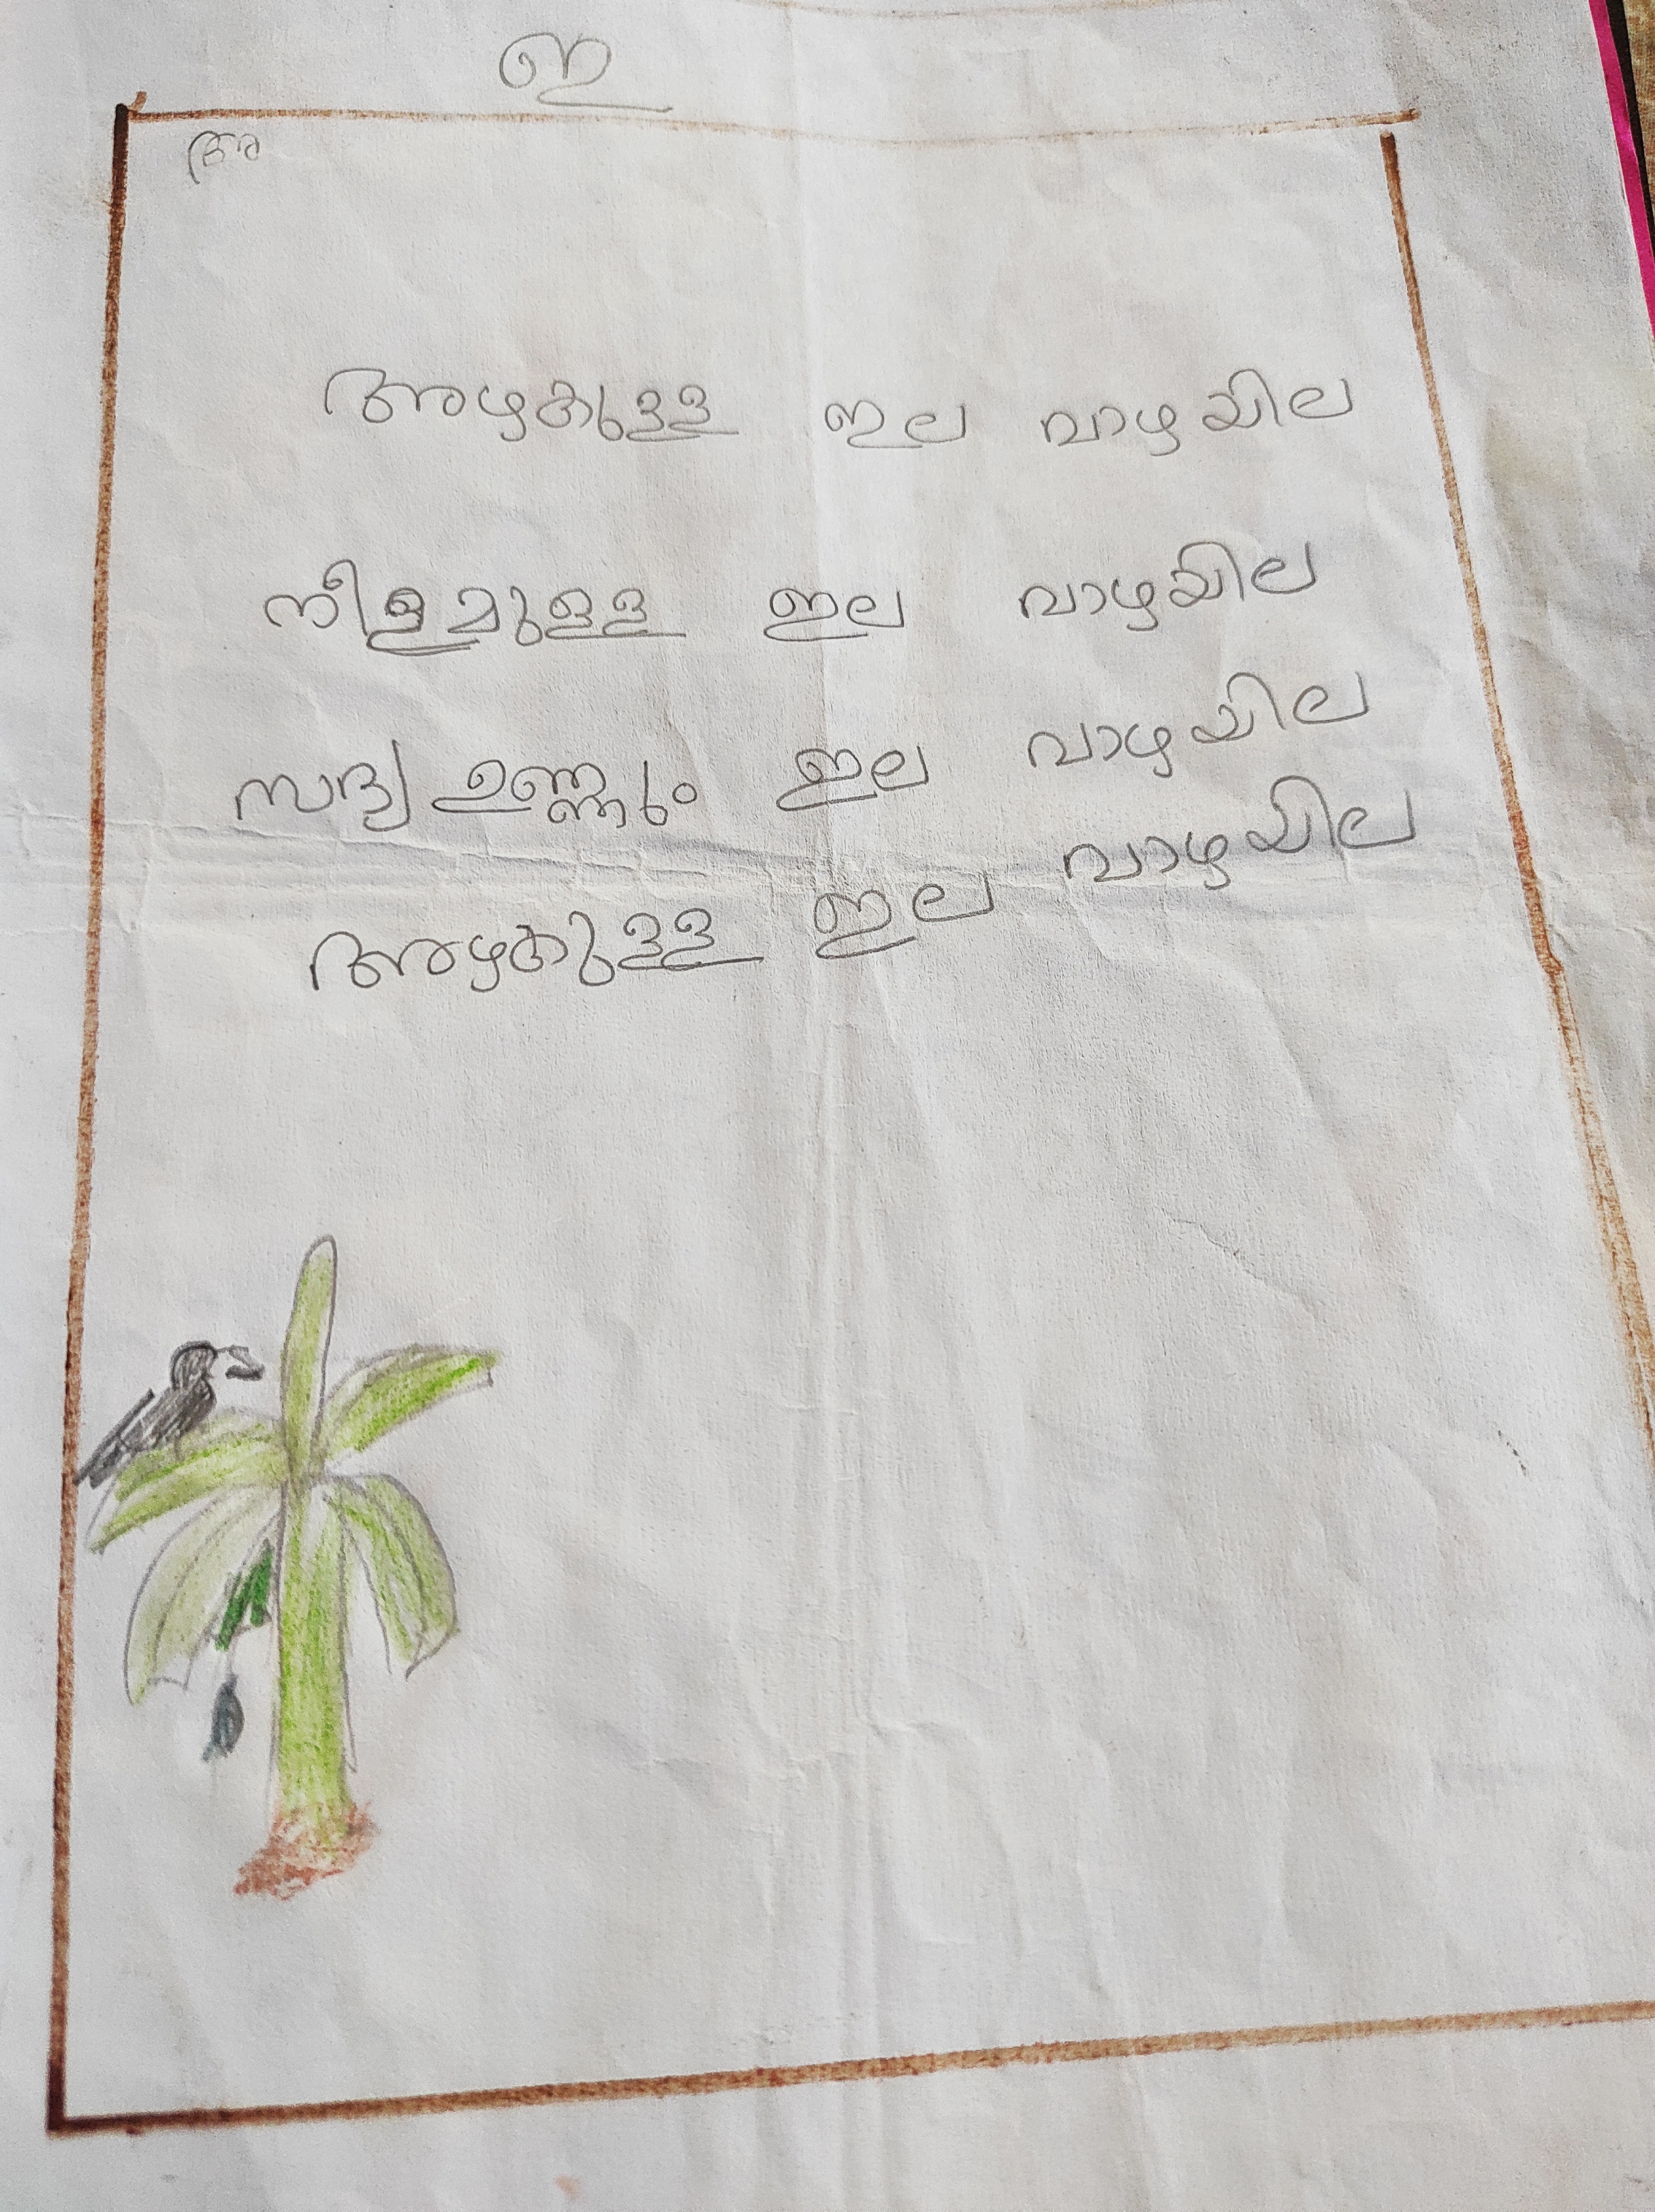 ഇ
അ
അഴകുള്ള ഇല വാഴയില
നീളമുള്ള ഇല വാഴയില
സദ്യ ഉണ്ണും ഇല വാഴയില
അഴകുള്ള ഇല വാഴയില